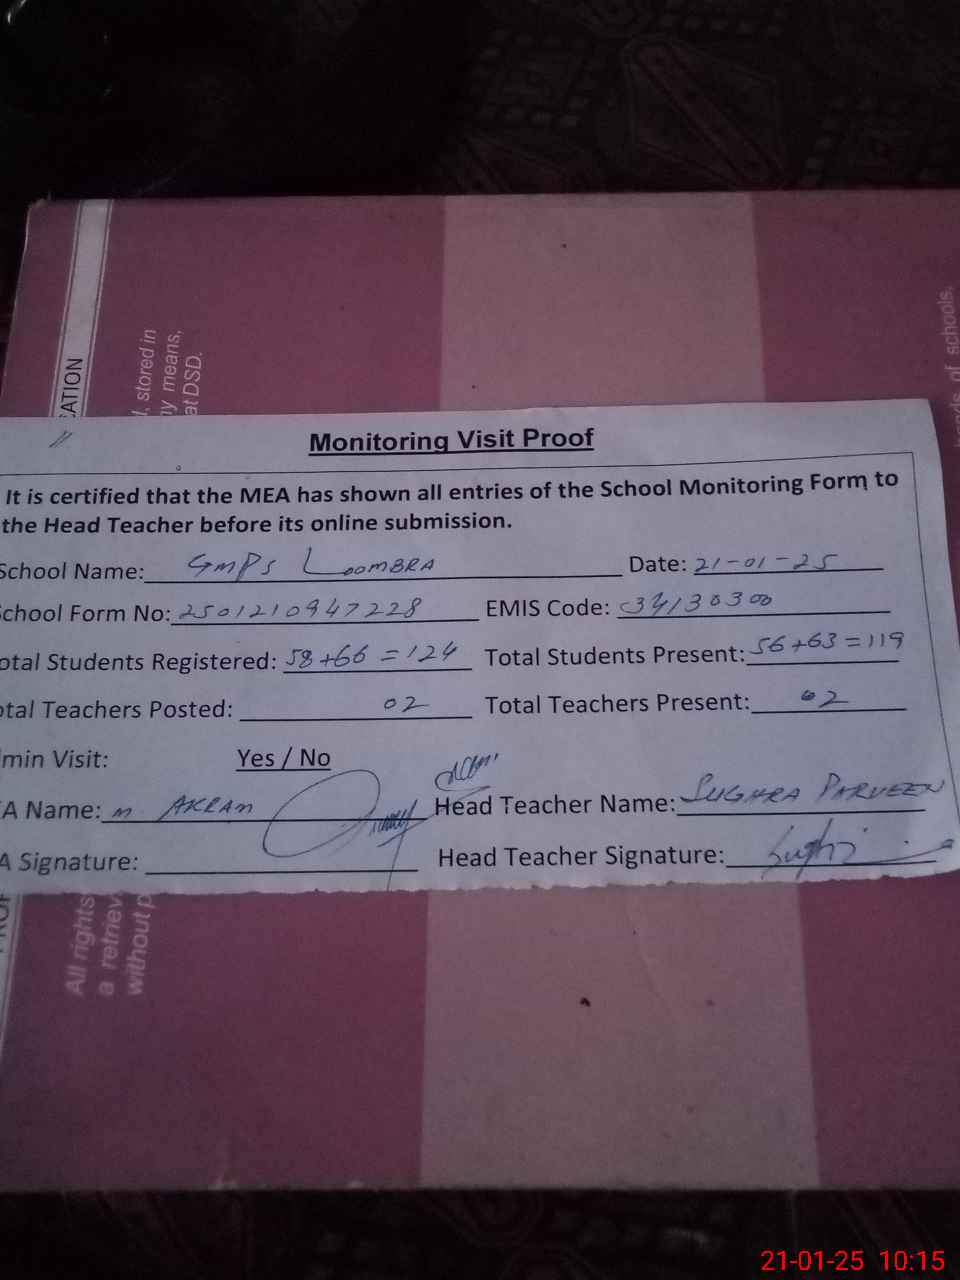 ATION
, stored in
ny means,
at DSD.
of schools.
Monitoring Visit Proof
It is certified that the MEA has shown all entries of the School Monitoring Form to
the Head Teacher before its online submission.
School Name: GMPS LOOMBRA Date: 21-01-25
chool Form No: 2501210947228 EMIS Code: 34130300
otal Students Registered: 58+66=124 Total Students Present: 56+63=119
otal Teachers Posted: 02 Total Teachers Present: 02
min Visit: Yes / No
A Name: M AKRAM Head Teacher Name: SUGHRA PARVEEN
A Signature: Head Teacher Signature:
All rights
a retriev
without p
21-01-25 10:15